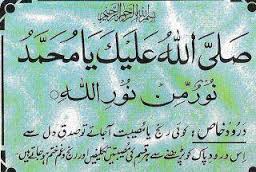 بسم الله الرحمن الرحيم
صَلَّى اللهُ عَلَيْكَ يَا مُحَمَّدُ
نُورٌ مِّنْ نُورِ اللهِ
درود خاص: کوئی رنج یا مصیبت آجائے تو صدقِ دل سے
اِس درود پاک کو پڑھنے سے ہر قسم کی مصیبتیں تکلیفیں اور رنج و غم ختم ہو جاتے ہیں